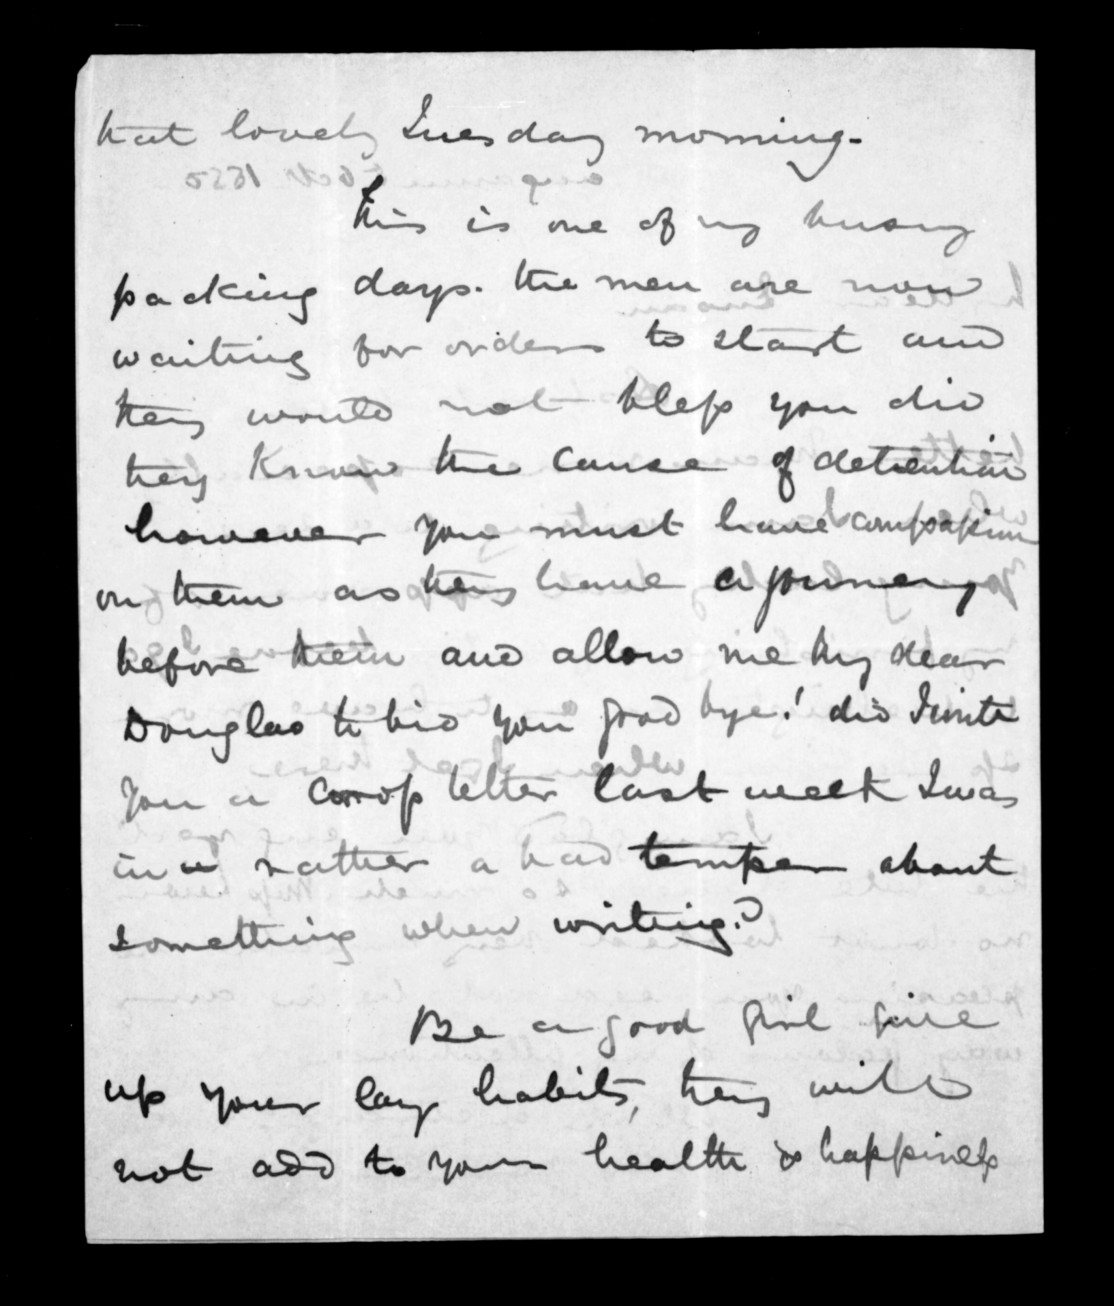 that lovely Tuesday morning.
This is one of my busy
packing days. the men are now
waiting for orders to start and
they would not bless you did
they know the cause of detention
however you must have compassion
on them as they have a journey
before them and allow me my dear
Douglas to bid you good bye! did I write
you a cross letter last week I was
in a rather a bad temper about
something when writing?
Be a good girl give
up your lazy habits, they will
not add to your health & happiness